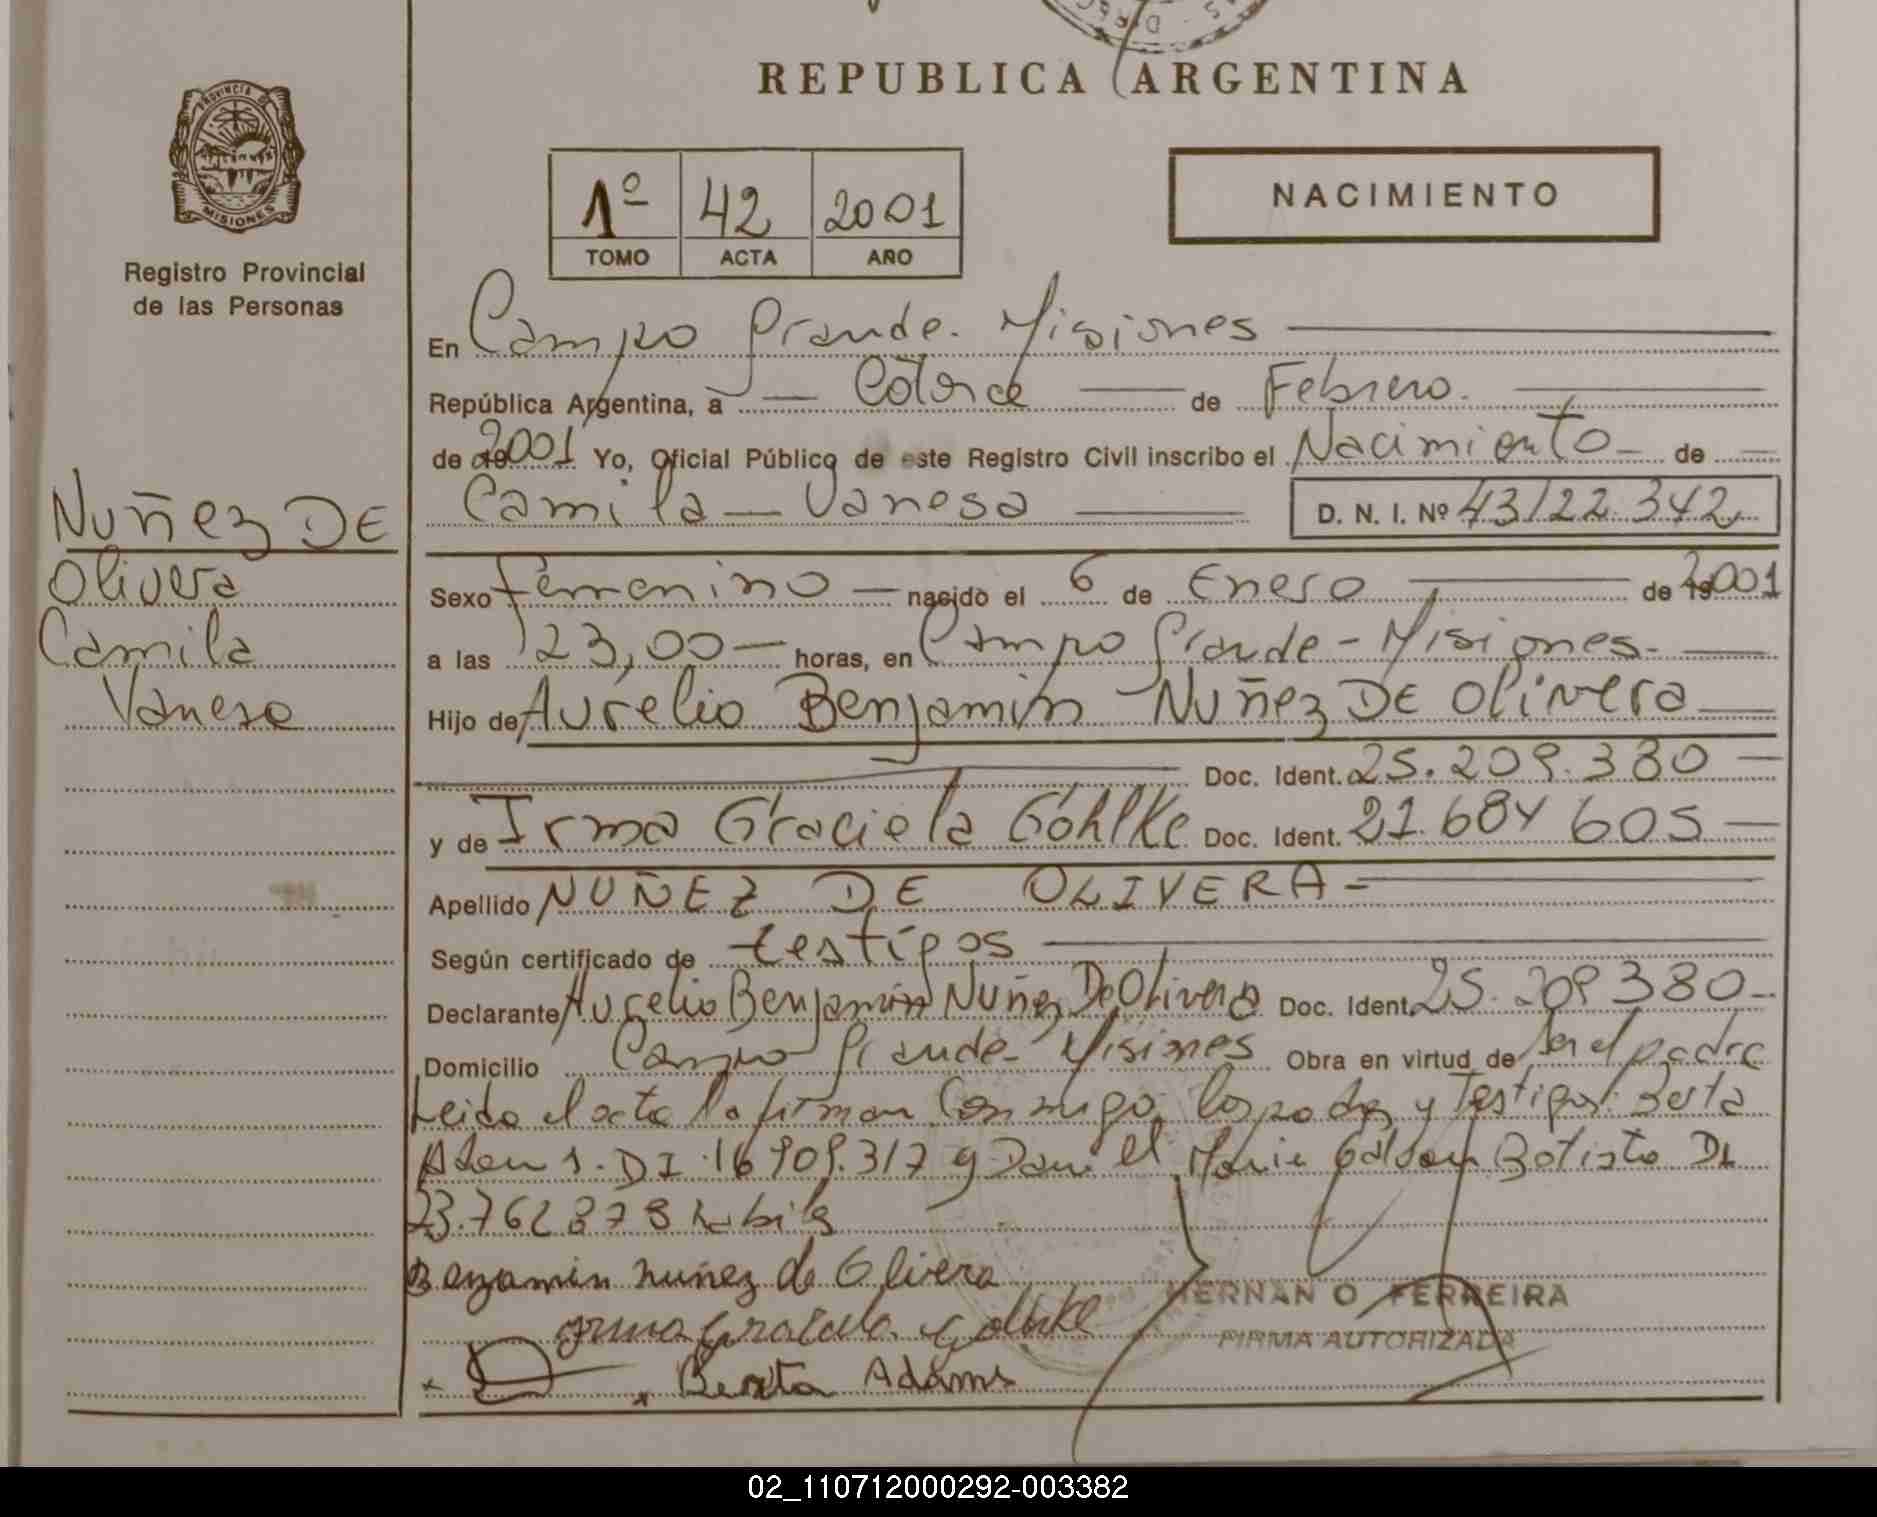 REPUBLICA ARGENTINA
PROVINCIA DE
MISIONES
Registro Provincial
de las Personas
1º 42 2001
TOMO ACTA AÑO
NACIMIENTO
En Campo Grande. Misiones
República Argentina, a Catorce de Febrero.
de 2001 Yo, Oficial Público de este Registro Civil inscribo el Nacimiento de
Camila Vanesa D. N. I. Nº 43122.342
NUÑez DE
Olivera
Camila
Vanesa
Sexo femenino nacido el 6 de Enero de 2001
a las 23,00 horas, en Campo Grande - Misiones.
Hijo de Aurelio Benjamin NUÑez DE Olivera
Doc. Ident. 25.209.380
y de Irma Graciela Göhlke Doc. Ident. 21.684 605
Apellido NUÑEZ DE OLIVERA
Según certificado de testigos
Declarante Aurelio Benjamin Nuñez De Olivera Doc. Ident. 25.209380
Domicilio Campo Grande - Misiones Obra en virtud de Ser el padre
Leido el acta la firman Conmigo, los padres y Testigos: Berta
Adams. DI. 16 909.317 y Daniel Batista DI
23.762 878 habiles
Benjamin nuñez de Olivera
Irma Graciela Göhlke
HERNAN O. FERREIRA
FIRMA AUTORIZADA
x x Berta Adams
02_110712000292-003382